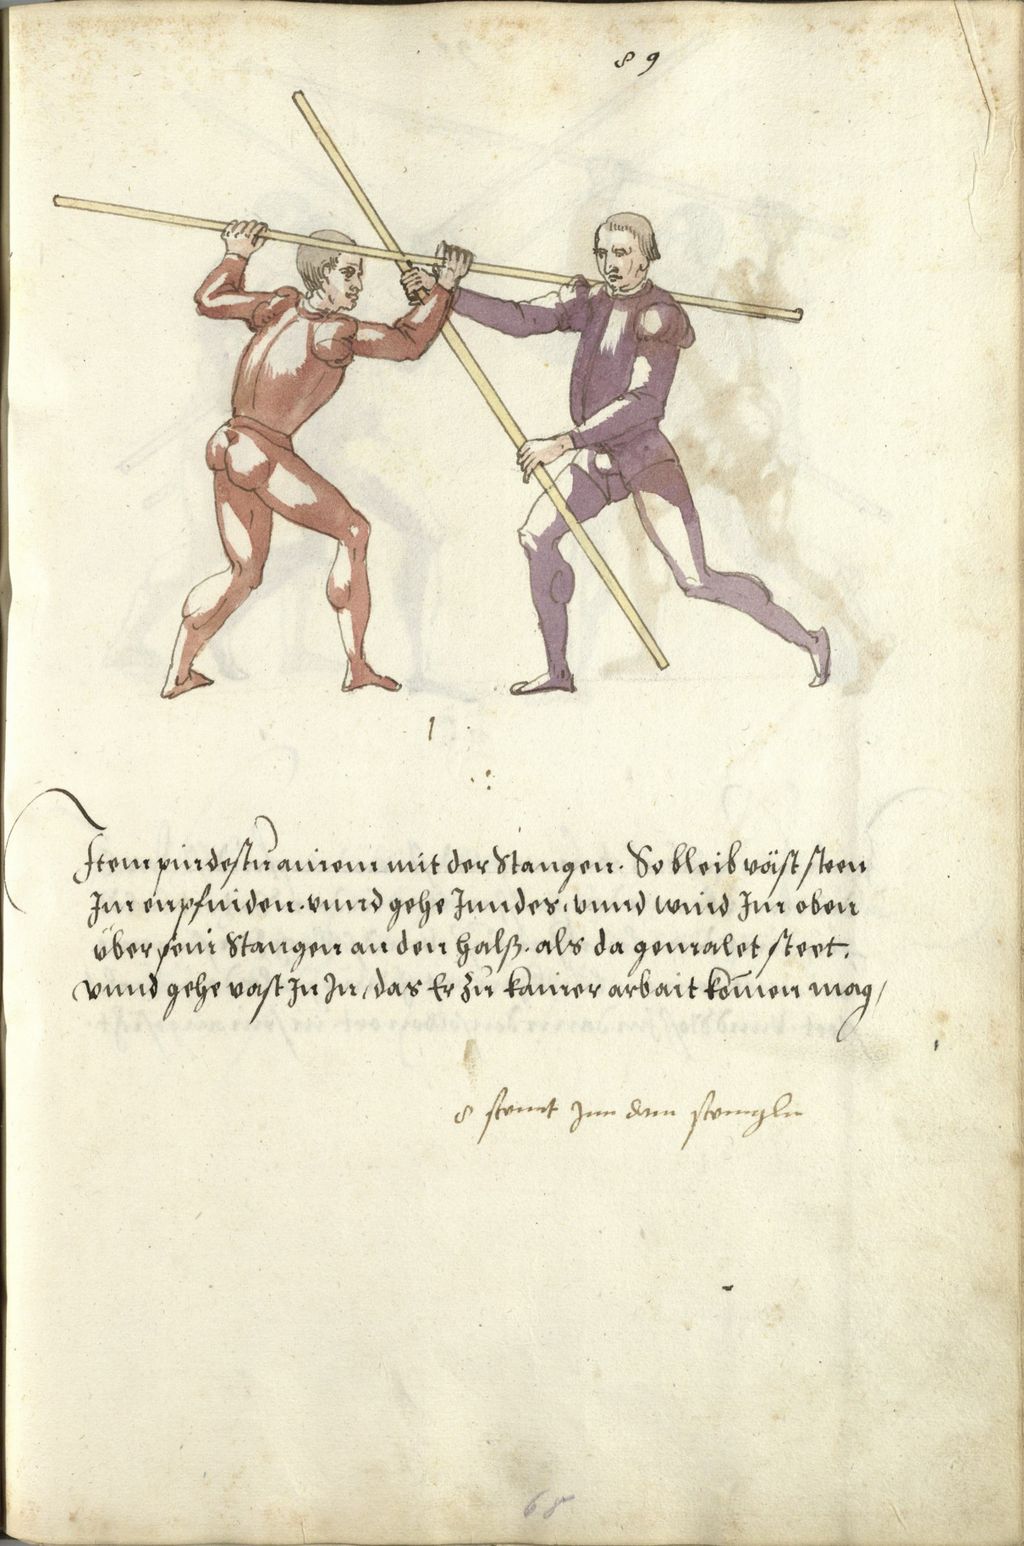 89
1
Item pindestu ainem mit der Stangen. So bleib väst steen
Im enpfinden. vnnd gehe Inndes, vnnd wind Im oben
über sein Stangen an den halß. als da gemalet steet.
vnnd gehe vast In In, das Er zu kainer arbait komen mag,
8 stuckt Inn dem stenglin
68